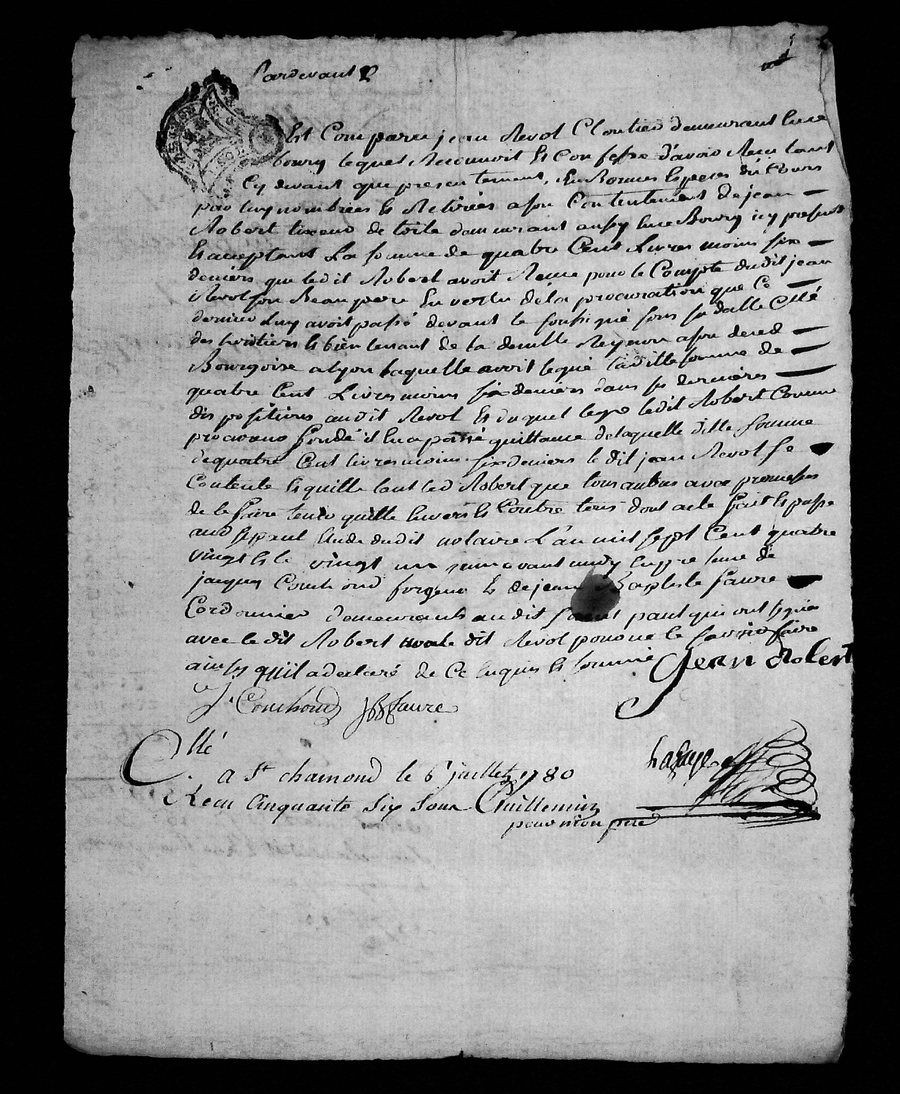 Pardevant
Est Comparu jean Revol Cloutier demeurant
bourg lequel Reconnoit Et Confesse d'avoir Recu tant
Cy devant que presentement, En Bonnes Especes du Cours
par luy nombrées Et Retirées a son Contentement de jean
Robert tisseur de toile demeurant aussy Bourg icy present
Et acceptant La somme de quatre Cent Livres moins six
deniers que ledit Robert avoit Recue pour le Compte dudit jean
Revol son Beaupere En vertu de la procuration que Ce
dernier Luy avoit passé devant le soussigné sous sa datte Collé
des heritiers Et bien tenant de la demlle Reynon
Bourgoise a lyon laquelle avoit legué ladite somme de
quatre Cent Livres moins six deniers dans ses dernieres
dispositions audit Revol Et duquel legs ledit Robert Comme
procureur fondé il En a passé quittance de laquelle ditte somme
de quatre Cent livres moins six deniers le dit jean Revol se
Contente Et quitte tant led Robert que tous autres avec promesses
de le faire tenir quitte Envers Et Contre tous dont acte fait Et passe
aud St paul Etude dudit notaire L'an mil sept Cent quatre
vingt Et le vingt un juin avant midy En presence de
jacques Couchoud forgeur Et de jean Baptiste faure
Cordonnier demeurants audit saint paul qui ont signé
avec le dit Robert non le dit Revol pour ne le savoir faire
ainsy qu'il a declaré de Ce Enquis Et sommé Jean Robert
J. Couchoud JB faure
Cllé
a St chamond le 6 juillet 1780
Recu Cinquante six sous Guillemin
pour mon pere